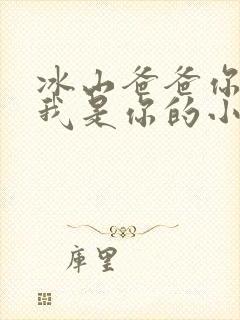 冰山爸爸你
我是你的小
库里